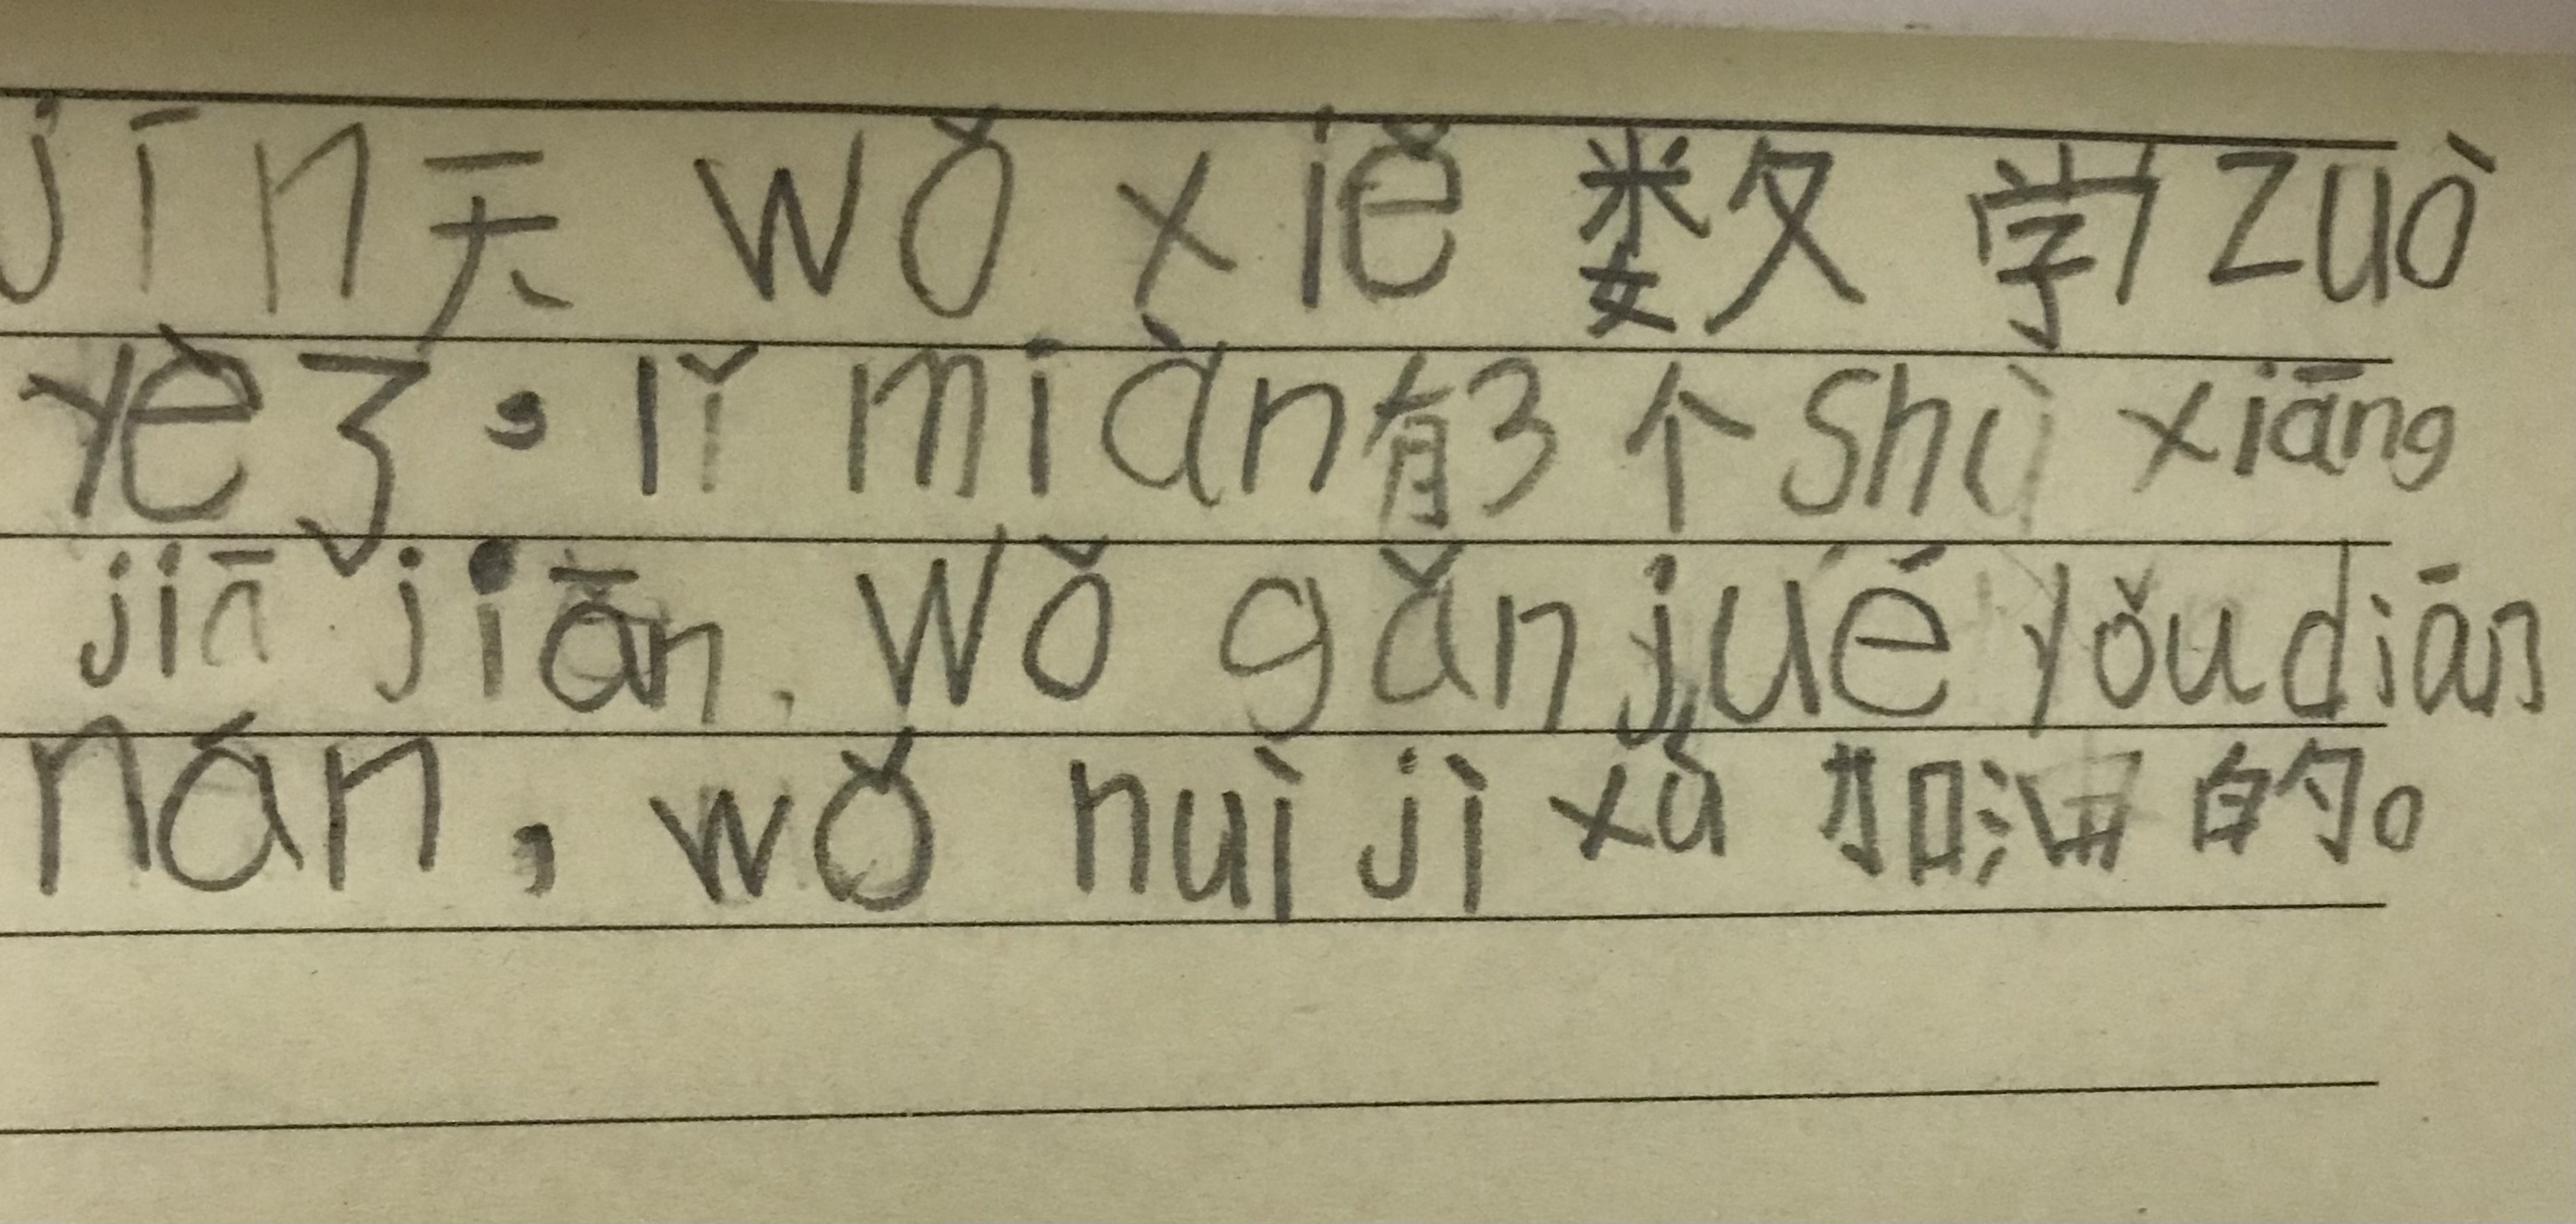 jīn天 wǒ xiě 数学zuò
yè了，lǐ miàn有3个shù xiāng
jiā jiān. wǒ gǎn jué yǒu diān
nán，wǒ huì jì xù 加油的。